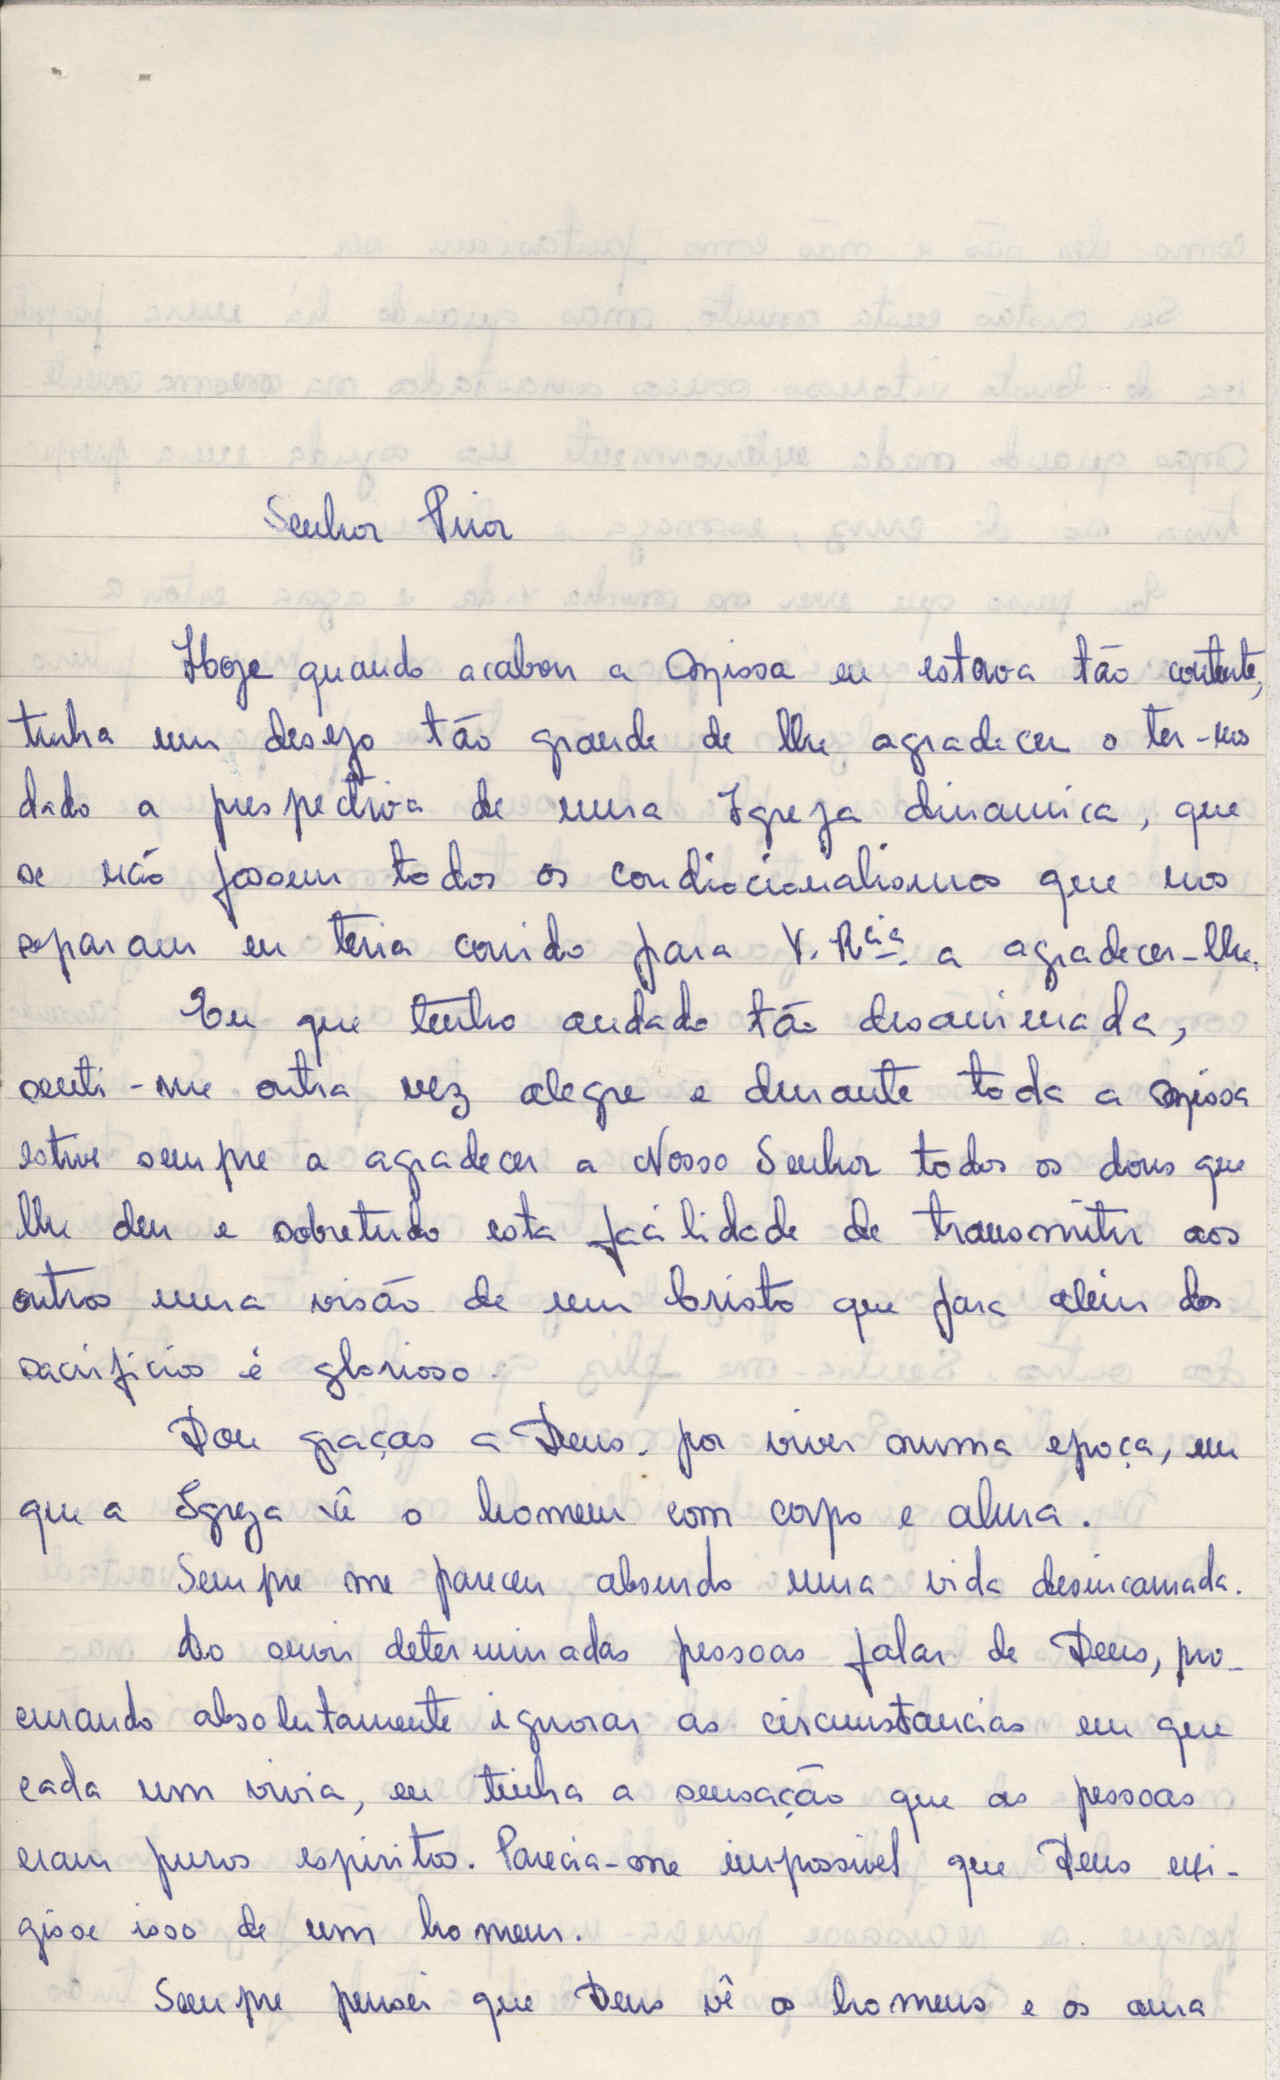 Senhor Prior
Hoje quando acabou a missa eu estava tão contente,
tinha um desejo tão grande de lhe agradecer o ter-nos
dado a prespectiva de uma Igreja dinamica, que
se não fossem todos os condicionalismos que nos
separam eu teria corrido para V. Rcia. a agradecer-lhe.
Eu que tenho andado tão desanimada,
senti-me outra vez alegre e durante toda a missa
estive sempre a agradecer a Nosso Senhor todos os dons que
lhe deu e sobretudo esta facilidade de transmitir aos
outros uma visão de um Cristo que para além dos
sacrificios é glorioso.
Dou graças a Deus. por viver numa epoça, em
que a Igreja vê o homem com corpo e alma.
Sempre me pareceu absurdo uma vida desincarnada.
Ao ouvir determinadas pessoas falar de Deus, pro-
curando absolutamente ignorar as circunstancias em que
cada um vivia, eu tinha a sensação que as pessoas
eram puros espiritos. Parecia-me impossivel que Deus exi-
gisse isso de um homem.
Sempre pensei que Deus vê os homens e os ama